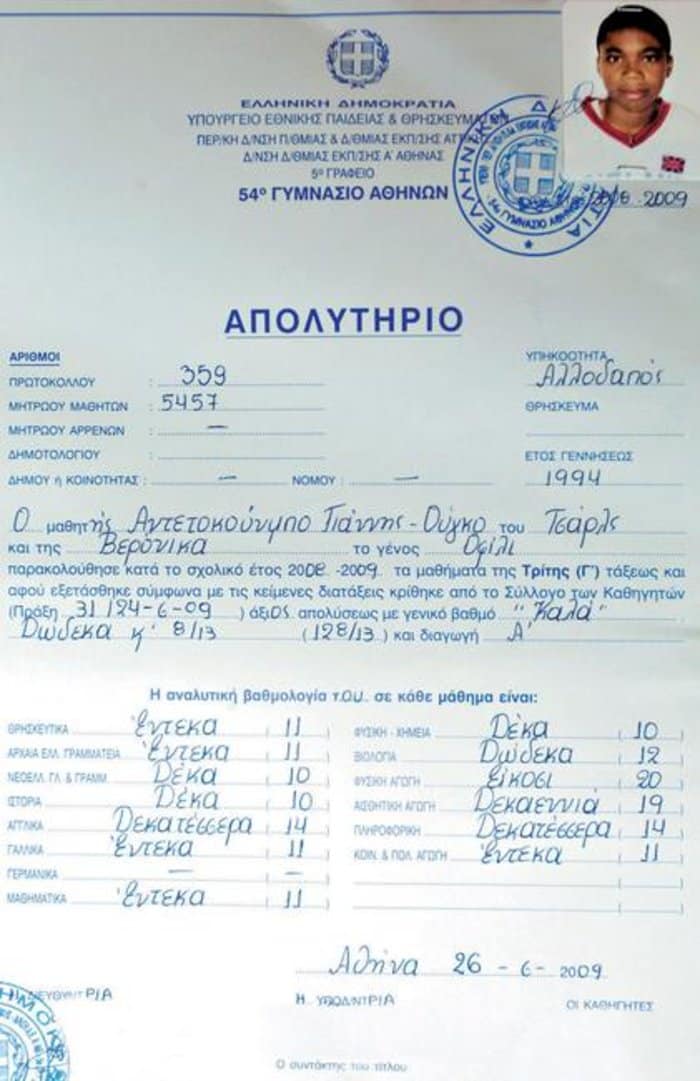 ΕΛΛΗΝΙΚΗ ΔΗΜΟΚΡΑΤΙΑ
ΥΠΟΥΡΓΕΙΟ ΕΘΝΙΚΗΣ ΠΑΙΔΕΙΑΣ & ΘΡΗΣΚΕΥΜΑΤΩΝ
ΠΕΡ/ΚΗ Δ/ΝΣΗ Π/ΘΜΙΑΣ & Δ/ΘΜΙΑΣ ΕΚΠ/ΣΗΣ ΑΤΤΙΚΗΣ
Δ/ΝΣΗ Δ/ΘΜΙΑΣ ΕΚΠ/ΣΗΣ Α' ΑΘΗΝΑΣ
5º ΓΡΑΦΕΙΟ
54º ΓΥΜΝΑΣΙΟ ΑΘΗΝΩΝ
ΕΛΛΗΝΙΚΗ ΔΗΜΟΚΡΑΤΙΑ
54º ΓΥΜΝΑΣΙΟ ΑΘΗΝΩΝ
2008 - 2009
ΑΠΟΛΥΤΗΡΙΟ
ΑΡΙΘΜΟΙ ΥΠΗΚΟΟΤΗΤΑ
ΠΡΩΤΟΚΟΛΛΟΥ : 359 Αλλοδαπός
ΜΗΤΡΩΟΥ ΜΑΘΗΤΩΝ : 5457 ΘΡΗΣΚΕΥΜΑ
ΜΗΤΡΩΟΥ ΑΡΡΕΝΩΝ : —
ΔΗΜΟΤΟΛΟΓΙΟΥ : ΕΤΟΣ ΓΕΝΝΗΣΕΩΣ
ΔΗΜΟΥ ή ΚΟΙΝΟΤΗΤΑΣ : — ΝΟΜΟΥ : — 1994
Ο μαθητής Αντετοκούνμπο Γιάννης - Ούγκο του Τσάρλς
και της Βερόνικα το γένος Οφίλι
παρακολούθησε κατά το σχολικό έτος 2008 -2009 τα μαθήματα της Τρίτης (Γ') τάξεως και
αφού εξετάσθηκε σύμφωνα με τις κείμενες διατάξεις κρίθηκε από το Σύλλογο των Καθηγητών
(Πράξη 31/24-6-09) άξιος απολύσεως με γενικό βαθμό "Καλά"
Δώδεκα κ' 8/13 (128/13) και διαγωγή Α'
Η αναλυτική βαθμολογία του σε κάθε μάθημα είναι:
ΘΡΗΣΚΕΥΤΙΚΑ Έντεκα ( 11 ) ΦΥΣΙΚΗ - ΧΗΜΕΙΑ Δέκα ( 10 )
ΑΡΧΑΙΑ ΕΛΛ. ΓΡΑΜΜΑΤΕΙΑ Έντεκα ( 11 ) ΒΙΟΛΟΓΙΑ Δώδεκα ( 12 )
ΝΕΟΕΛΛ. ΓΛ. & ΓΡΑΜΜ. Δέκα ( 10 ) ΦΥΣΙΚΗ ΑΓΩΓΗ είκοσι ( 20 )
ΙΣΤΟΡΙΑ Δέκα ( 10 ) ΑΙΣΘΗΤΙΚΗ ΑΓΩΓΗ Δεκαεννιά ( 19 )
ΑΓΓΛΙΚΑ Δεκατέσσερα ( 14 ) ΠΛΗΡΟΦΟΡΙΚΗ Δεκατέσσερα ( 14 )
ΓΑΛΛΙΚΑ Έντεκα ( 11 ) ΚΟΙΝ. & ΠΟΛ. ΑΓΩΓΗ Έντεκα ( 11 )
ΓΕΡΜΑΝΙΚΑ — ( — )
ΜΑΘΗΜΑΤΙΚΑ Έντεκα ( 11 )
Αθήνα 26 - 6 - 2009
ΔΙΕΥΘΥΝΤΡΙΑ Η ΥΠΟΔ/ΝΤΡΙΑ ΟΙ ΚΑΘΗΓΗΤΕΣ
Ο συντάκτης του τίτλου